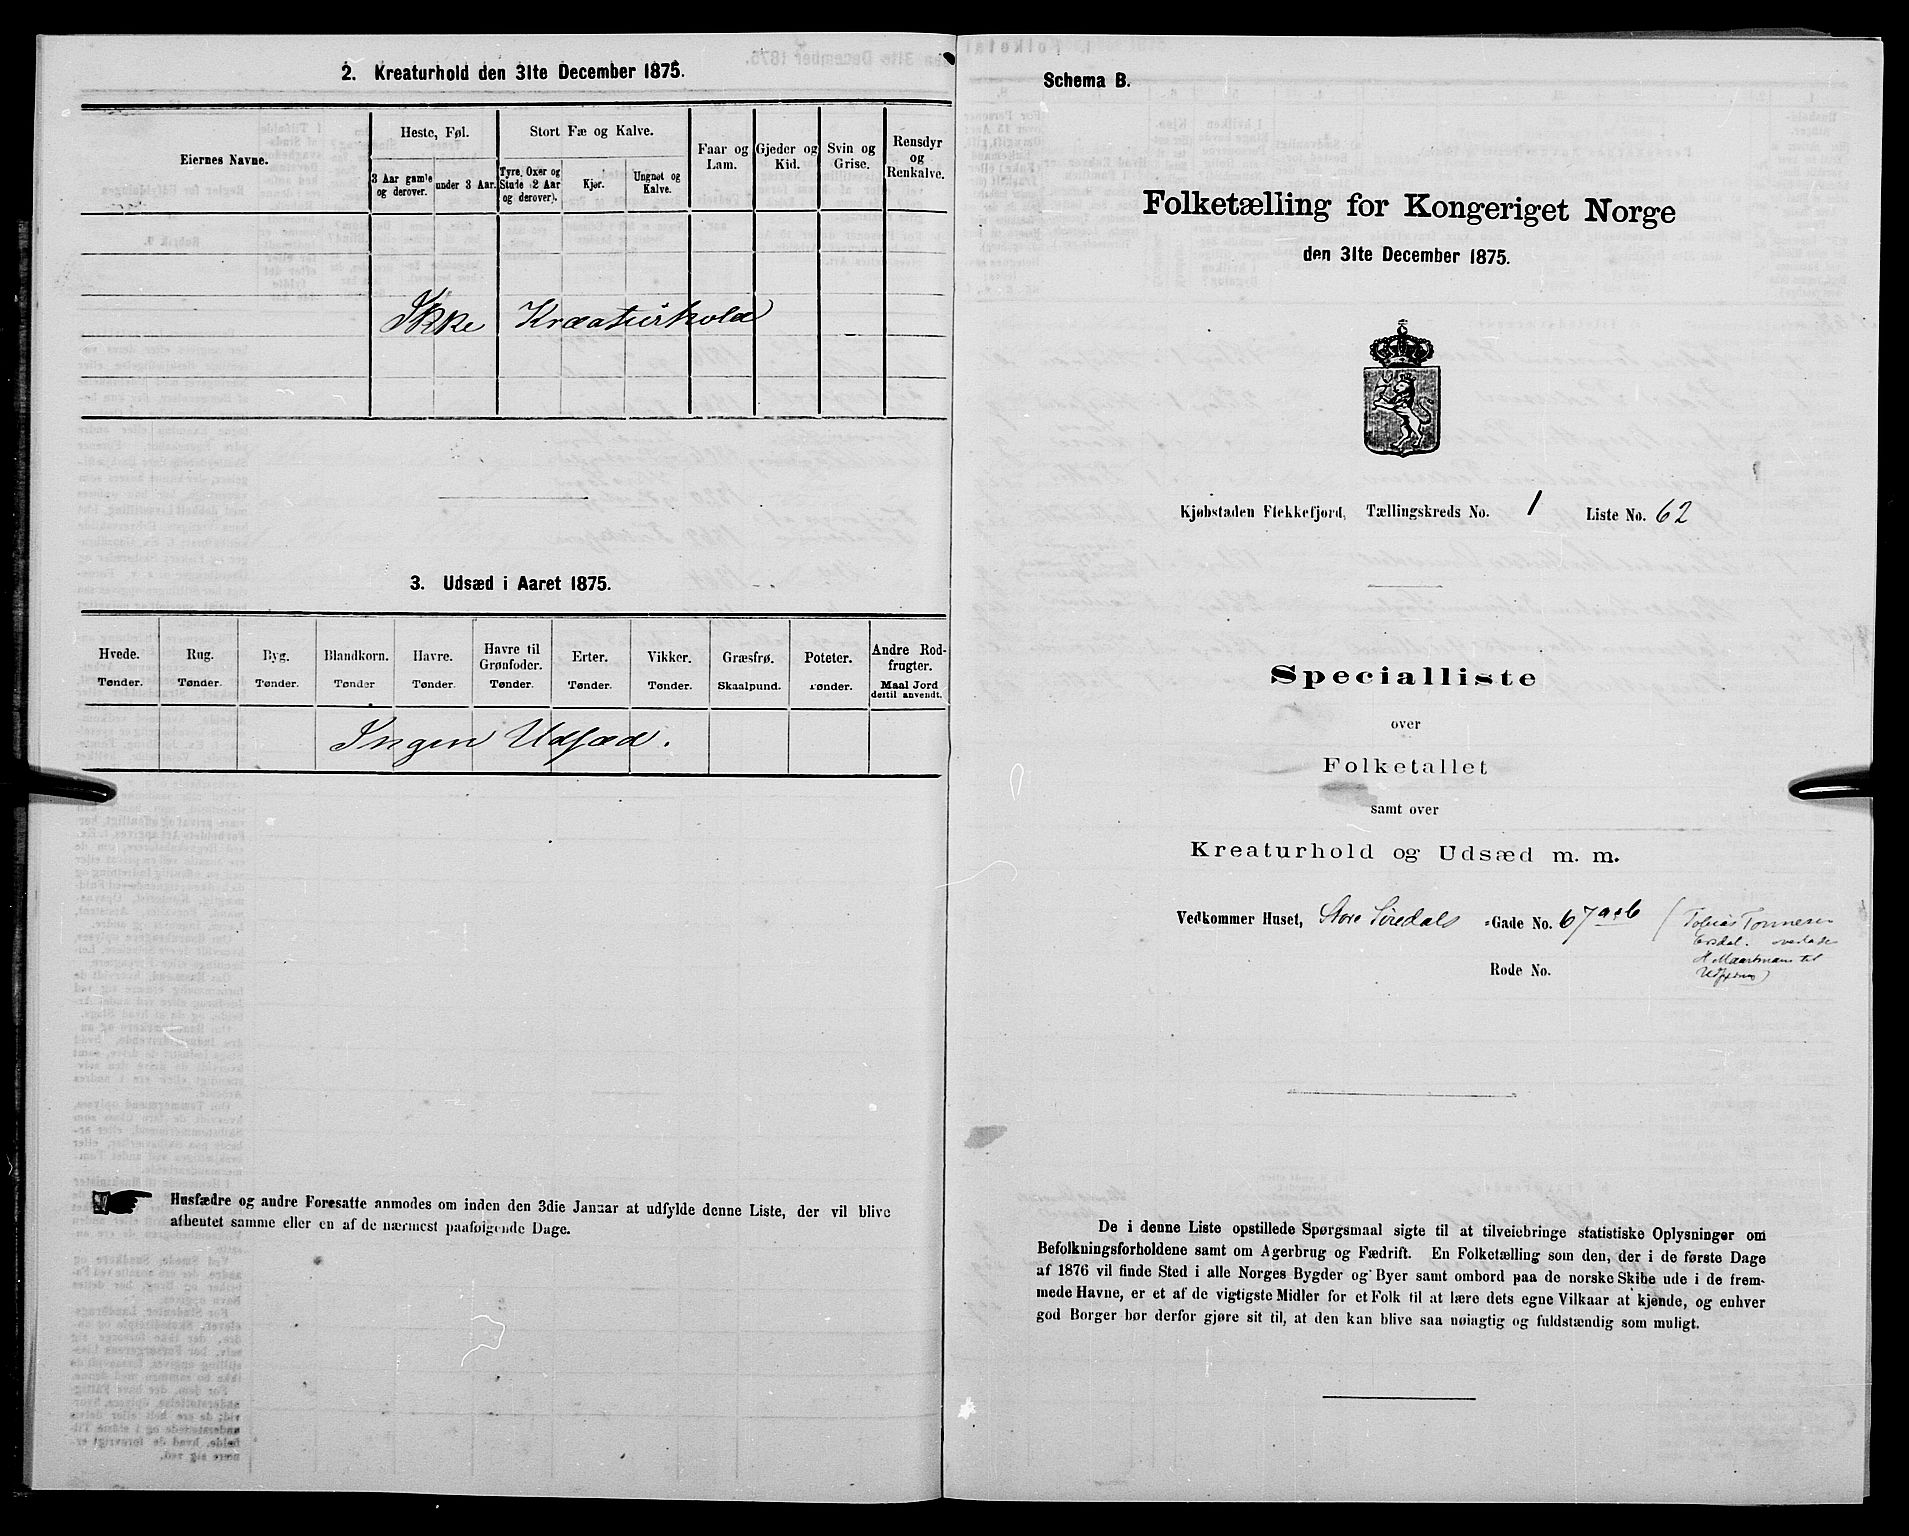 2. Kreaturhold den 31te December 1875.
Eiernes Navne.
Heste, Føl.
Stort Fæ og Kalve.
Faar og Lam.
Gjeder og Kid.
Svin og Grise.
Rensdyr og Renkalve.
3 Aar gamle og derover.
under 3 Aar.
Tyre, Oxer og Stude 2 Aar og derover).
Kjør.
Ungnøt og Kalve.
Ikke Kreaturhold
3. Udsæd i Aaret 1875.
Hvede. Tønder.
Rug. Tønder.
Byg. Tønder.
Blandkorn. Tønder
Havre. Tønder.
Havre til Grønfoder. Tønder.
Erter. Tønder.
Vikker. Tønder.
Græsfrø. Skaalpund.
Poteter. Tønder.
Andre Rodfrugter. Maal Jord dertil anvendt.
Ingen Udsæd.
Husfædre og andre Foresatte anmodes om inden den 3die Januar at udfylde denne Liste, der vil blive
afhentet samme eller en af de nærmest paafølgende Dage.
Schema B.
Folketælling for Kongeriget Norge
den 31te December 1875.
Kjøbstaden Flekkefjord, Tællingskreds No. 1 Liste No. 62
Specialliste
over
Folketallet
samt over
Kreaturhold og Udsæd m. m.
Vedkommer Huset, Store Siredals -Gade No. 67 a & b (Tobias Tonnesen
Ersdal.
H Maartmans til
Rode No.
De i denne Liste opstillede Spørgsmaal sigte til at tilveiebringe statistiske Oplysninger om
Befolkningsforholdene samt om Agerbrug og Fædrift. En Folketælling som den, der i de første Dage
af 1876 vil finde Sted i alle Norges Bygder og Byer samt ombord paa de norske Skibe ude i de frem-
mede Havne, er et af de vigtigste Midler for et Folk til at lære dets egne Vilkaar at kjende, og enhver
god Borger bør derfor gjøre sit til, at den kan blive saa nøiagtig og fuldstændig som muligt.